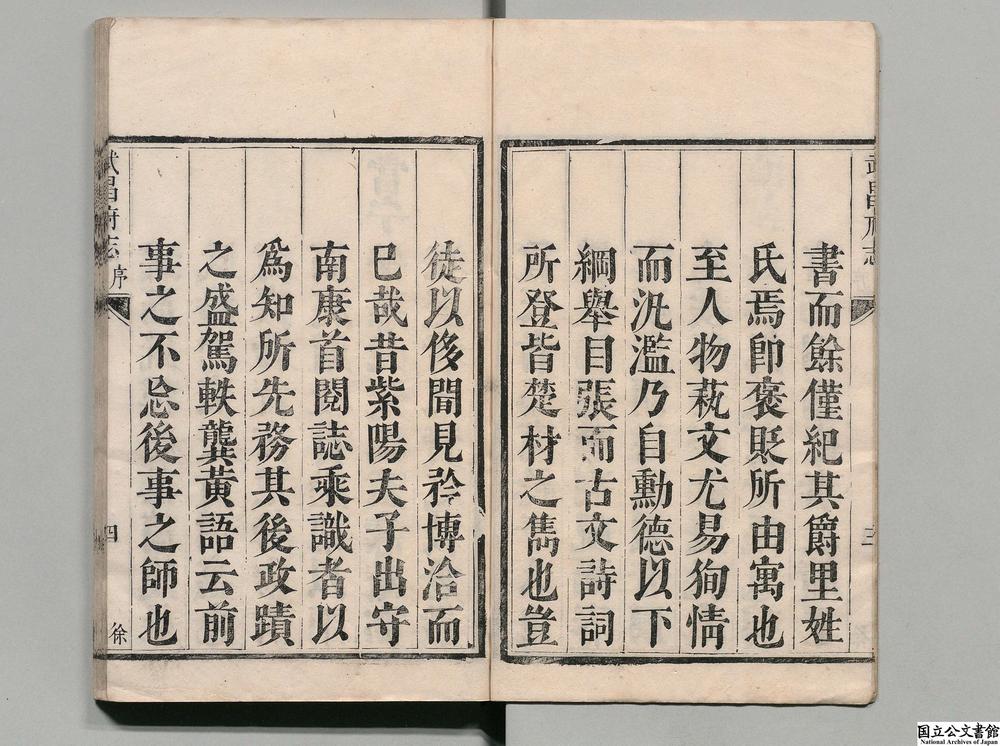 武昌府志
書而餘僅紀其爵里姓
氏焉卽褒貶所由寓也
至人物蓺文尤易狥情
而汎濫乃自勳德以下
綱舉目張而古文詩詞
所登皆楚材之雋也豈
徒以侈聞見矜博洽而
已哉昔紫陽夫子出守
南康首閱誌乘識者以
爲知所先務其後政蹟
之盛駕軼龔黃語云前
事之不忘後事之師也
武昌府志
序
四
徐
国立公文書館
National Archives of Japan